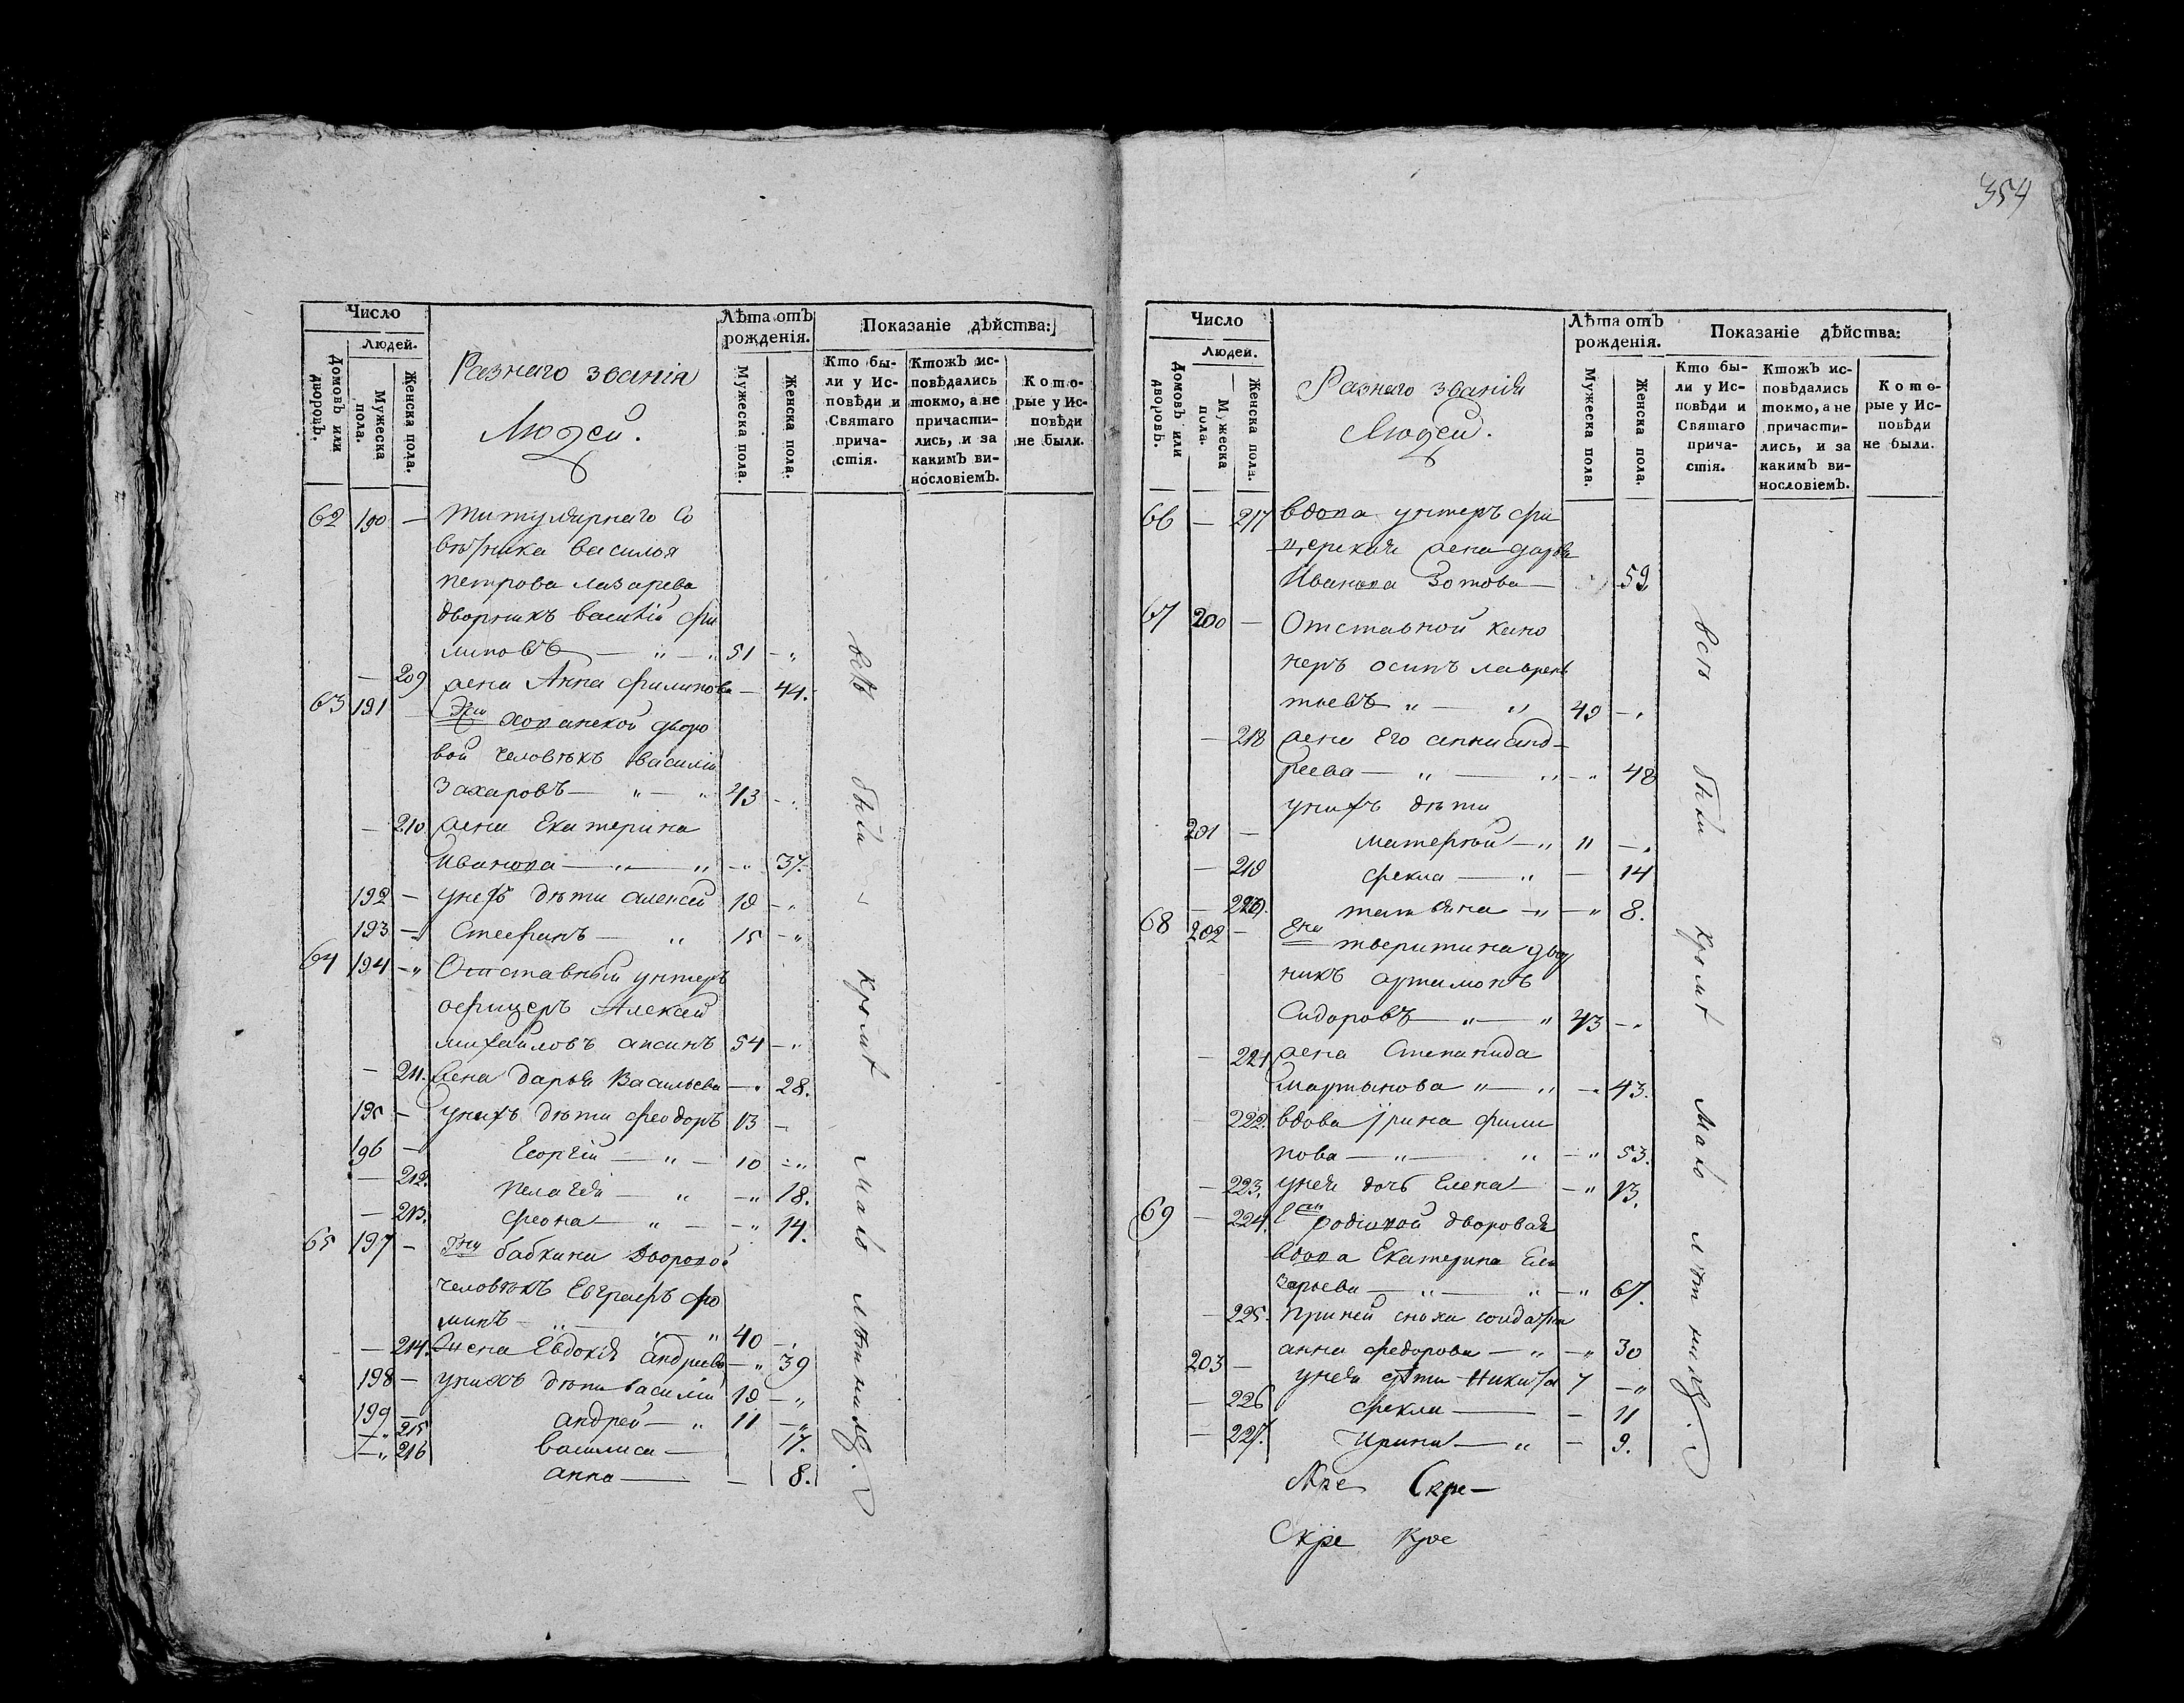 354
Число
Людей.
Домовъ или дворовъ.
Мужеска пола.
Женска пола.
Разнаго званія
Людей.
Лѣта отъ рожденія.
Мужеска пола.
Женска пола.
Показаніе дѣйства:
Кто бы-
ли у Ис-
повѣди и
Святаго
прича-
стія.
Ктожъ ис-
повѣдались
токмо, а не
причасти-
лись, и за
какимъ ви-
нословіемъ.
Кото-
рые у Ис-
повѣди
не были.
62 190 — титулярнаго Со
вѣтника василья
петрова лазарева
дворникъ василій фи
липовъ — „ — „ 51 — „
— 209 жена Анна филипова — 44.
63 191 Гжи дворо
вой человѣкъ василій
Захаровъ — „ — „ 43 — „
— 210 жена Екатерина
Иванова — „ — „ — „ 37.
192 — унихъ дѣти алексей 19 — „
193 — Стефанъ — „ 15 — „
64 194 — „ Отставный унтеръ
офицеръ Алексей
михайловъ 54 — „
— 211. жена дарья Васильева — „ 28.
195 — унихъ дѣти феодоръ 13 —
196 — Георгій — „ — 10 — „
— 212. пелагея — „ — „ 18.
— 213. — „ — — „ 14.
65 197 — Гжи бабкины дворовой
человѣкъ Евграфъ фо
минъ — „ — „ — „ 40 — „
— 214. жена Евдокія андреева — „ 39
198 — унихъ дѣти василій 19 — „
199 — андрей — „ 11 — „
— „ 215 василиса — 17.
— „ 216 анна — — 8.
всѣ были кромѣ мало лѣтныхъ.
Число
Людей.
Домовъ или дворовъ.
Мужеска пола.
Женска пола.
Разнаго званія
Людей.
Лѣта отъ рожденія.
Мужеска пола.
Женска пола.
Показаніе дѣйства:
Кто бы-
ли у Ис-
повѣди и
Святаго
прича-
стія.
Ктожъ ис-
повѣдались
токмо, а не
причасти-
лись, и за
какимъ ви-
нословіемъ.
Кото-
рые у Ис-
повѣди
не были.
66 — 217 вдова унтеръ офи
церская жена дарья
Иванова Зотова — 59
67 200 — Отставной кано
неръ осипъ лаврен
тьевъ „ — „ 49 — „
— 218 жена Его анна анд-
реева — „ — „ — „ 48
унихъ дѣти
201 — — „ 11 — „
— 219 фекла — „ — 14
— 220. татьяна — „ — „ 8.
68 202 — Гжи тверитина двор
никъ артимонъ
Сидоровъ — „ — „ 43 — „
— 221 жена Степанида
Мартынова „ — „ — „ 43.
— 222. вдова Ірина фили
пова — „ — „ — „ 53.
— 223. унея дочь Елена — — „ 13.
69 — 224. дворовая
вдова Екатерина Еле
зарьева — „ — „ — „ 67.
— 225. приней сноха солдатка
анна федорова — „ — „ 30
203 — унея дѣти Никита 7 — „
— 226 фекла — — 11
— 227. Ирина — „ — 9.
всѣ были кромѣ мало лѣтныхъ.
Скре—
Скре